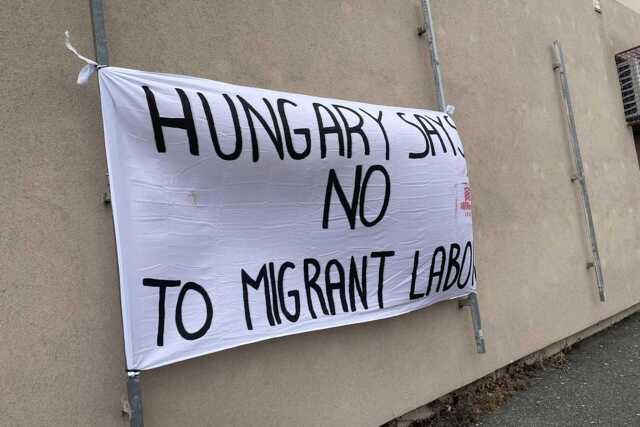 HUNGARY SAYS
NO
TO MIGRANT LABOR